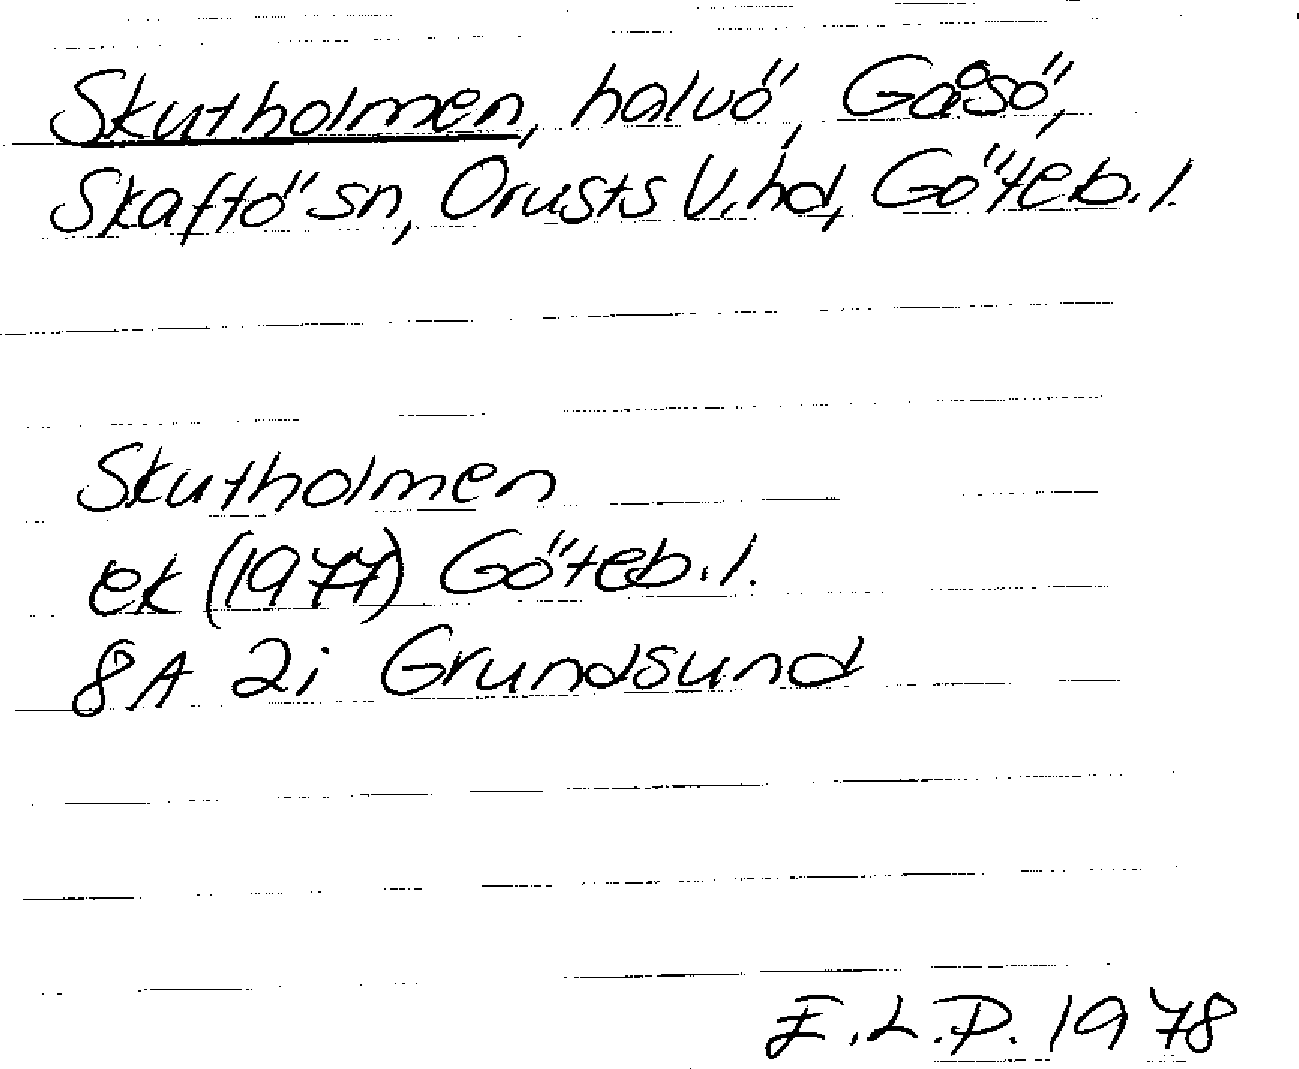 Skutholmen, halvö, Gåsö,
Skaftö sn, Orusts V. hd, Göteb. l.
Skutholmen
ek (1977) Göteb. l.
8A 2i Grundsund
E.L.P. 1978